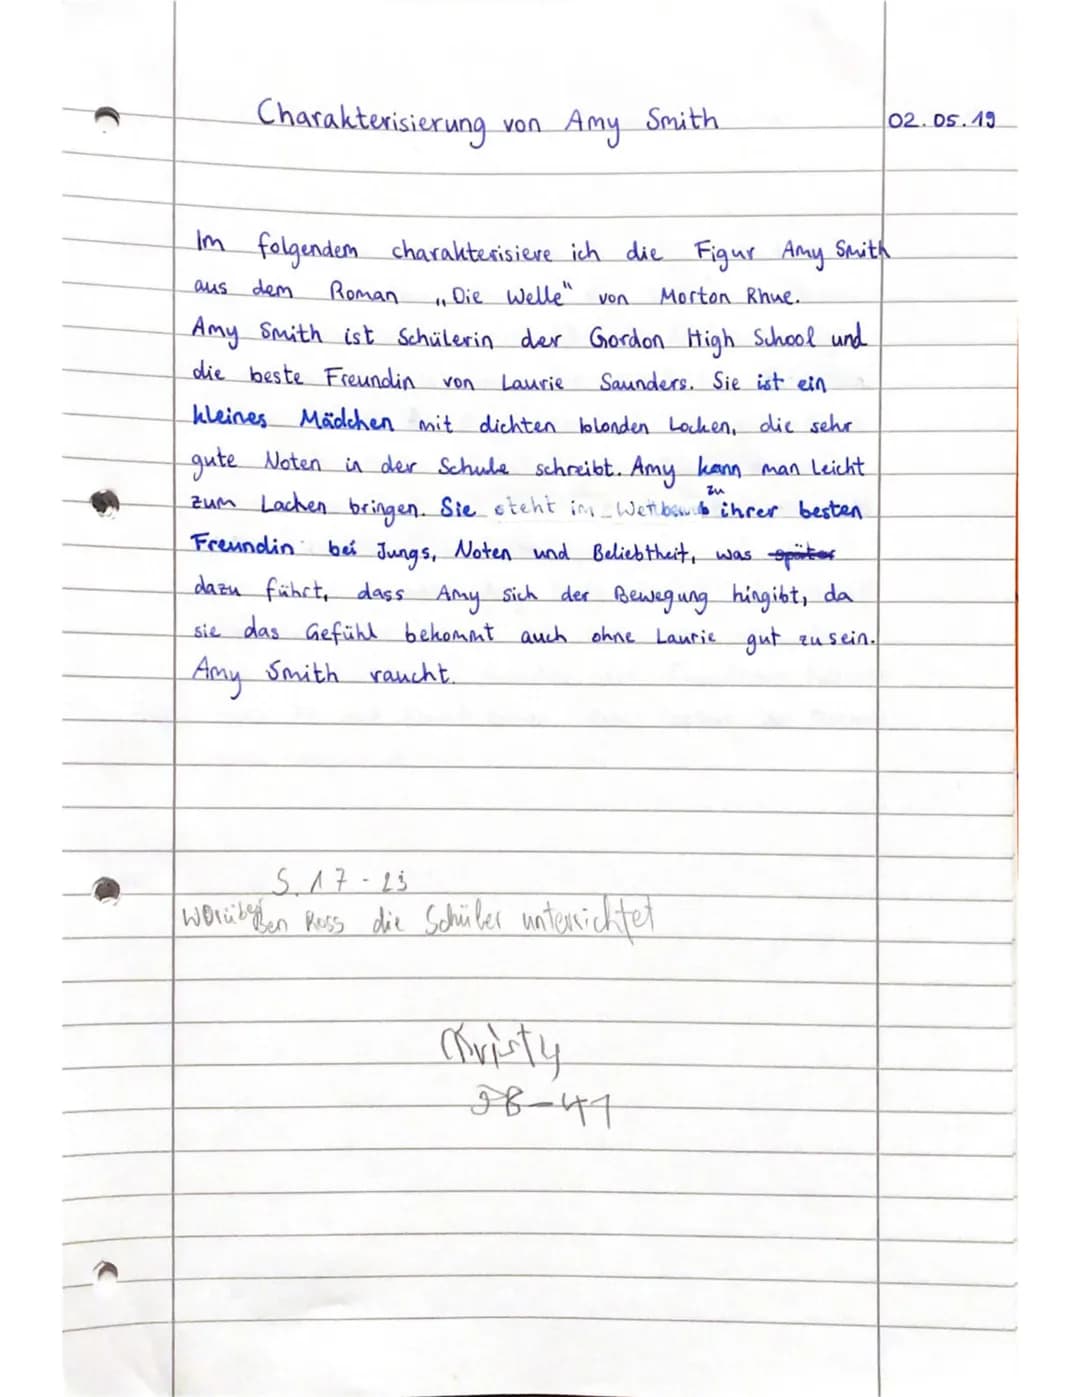 Charakterisierung von Amy Smith 02.05.19
Im folgendem charakterisiere ich die Figur Amy Smith
aus dem Roman „Die Welle" von Morton Rhue.
Amy Smith ist Schülerin der Gordon High School und
die beste Freundin von Laurie Saunders. Sie ist ein
kleines Mädchen mit dichten blonden Locken, die sehr
gute Noten in der Schule schreibt. Amy kann man leicht
zum Lachen bringen. Sie steht im Wettbewerb zu ihrer besten
Freundin bei Jungs, Noten und Beliebtheit, was später
dazu führt, dass Amy sich der Bewegung hingibt, da
sie das Gefühl bekommt auch ohne Laurie gut zu sein.
Amy Smith raucht.
S. 17-23
worüber Ben Ross die Schüler unterrichtet
Kristy
38-41